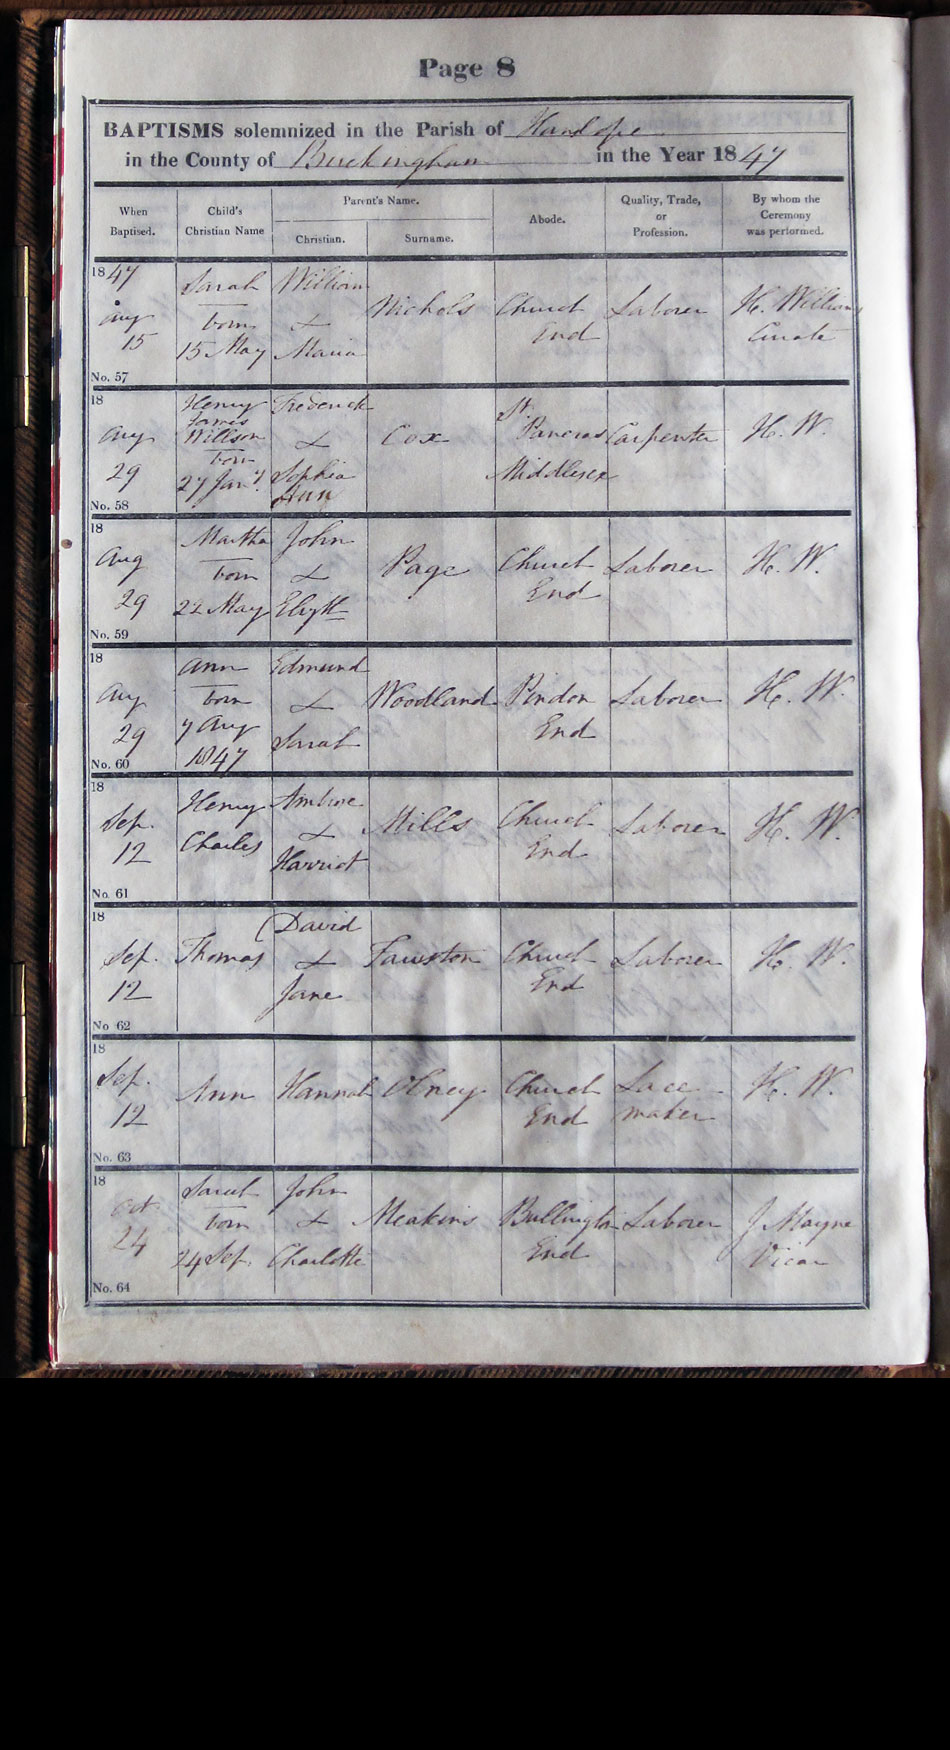 Page 8
BAPTISMS solemnized in the Parish of Hanslope
in the County of Buckingham in the Year 1847
When Baptised.
Child's Christian Name
Parent's Name.
Christian.
Surname.
Abode.
Quality, Trade, or Profession.
By whom the Ceremony was performed.
1847
Aug 15
No. 57
Sarah
born
15 May
William
&
Maria
Nichols
Church
End
Laborer
H. Williams
Curate
18
Aug
29
No. 58
Henry
James
Willson
born
27 Jany.
Frederick
&
Sophia
Ann
Cox
St.
Pancras
Middlesex
Carpenter
H. W.
18
Aug
29
No. 59
Martha
born
22 May
John
&
Elizth
Page
Church
End
Laborer
H. W.
18
Aug
29
No. 60
Ann
born
7 Aug
1847
Edmund
&
Sarah
Woodland
Pindon
End
Laborer
H. W.
18
Sep.
12
No. 61
Henry
Charles
Ambrose
&
Harriot
Mills
Church
End
Laborer
H. W.
18
Sep.
12
No 62
Thomas
David
&
Jane
Church
End
Laborer
H. W.
18
Sep.
12
No. 63
Ann
Hannah
Olney
Church
End
Lace
maker
H. W.
18
Oct
24
No. 64
Sarah
born
24 Sep.
John
&
Charlotte
Meakins
Bullington
End
Laborer
J Mayne
Vicar